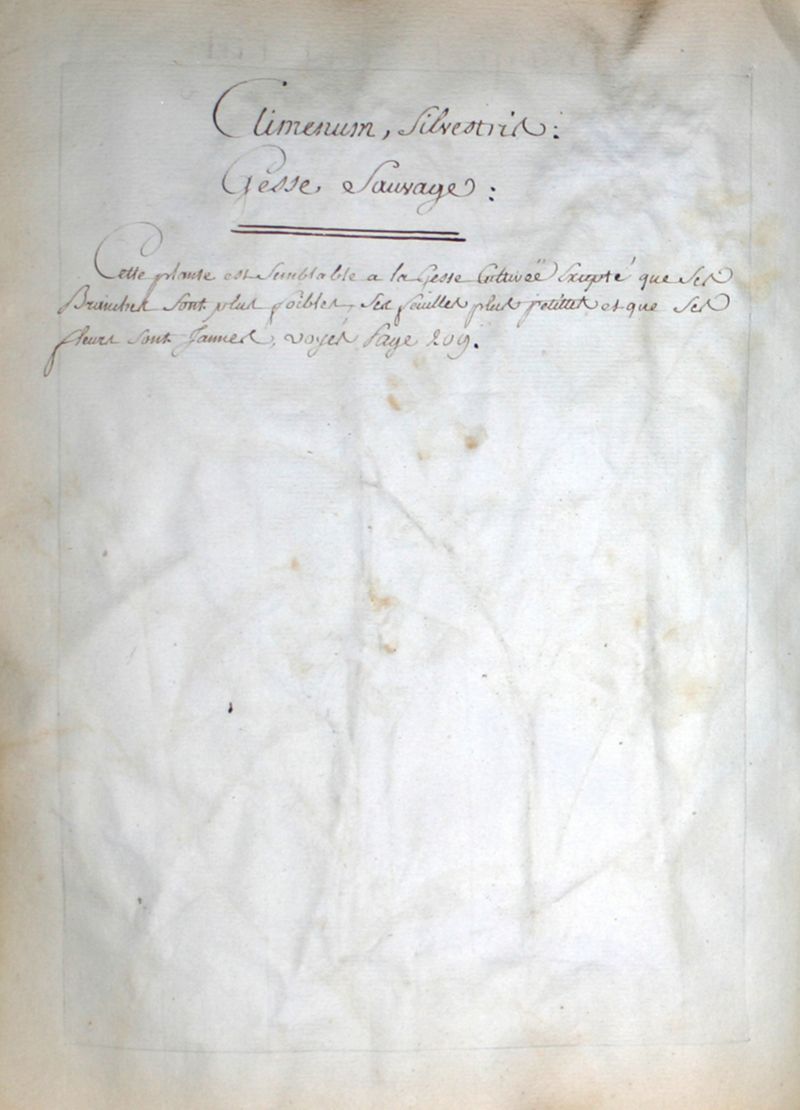 Climenum, Silvestris:
Gesse Sauvage:
Cette plante est Semblable a la Gesse Cultiveë Exepté que Ses
Branches Sont plus foibles, Ses feuilles plus petittes et que Ses
fleurs Sont Jaunes, voyés Page 209.